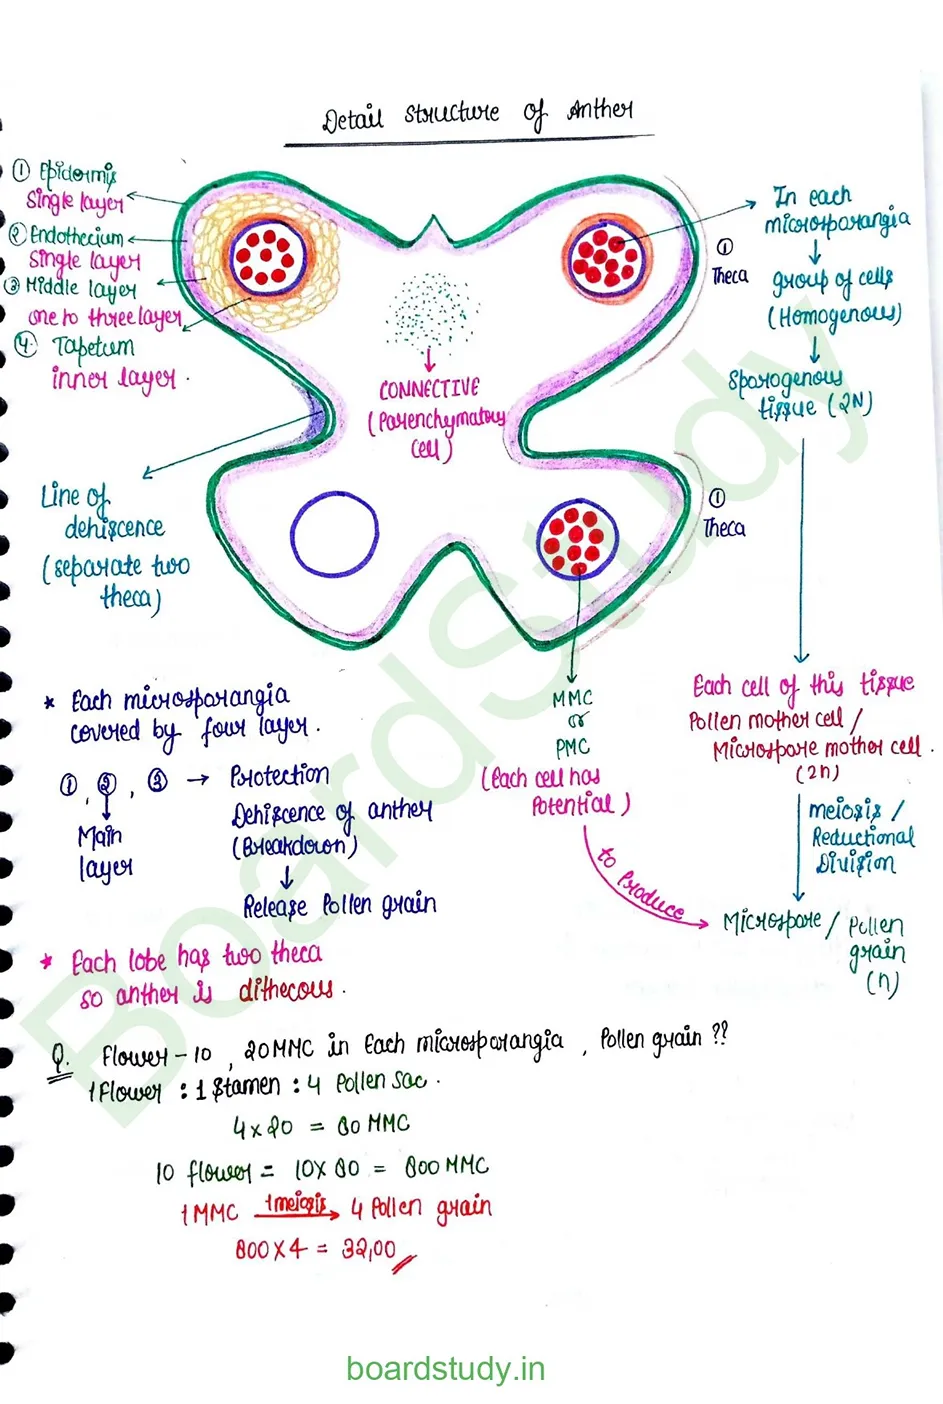 Detail Structure of Anther
① Epidermis
Single layer
② Endothecium
Single layer
③ Middle layer
one to three layer
④ Tapetum
inner layer.
CONNECTIVE
(Parenchymatory
cell)
① Theca
In each
microsporangia
↓
group of cells
(Homogenous)
↓
Sporogenous
tissue (2N)
Line of
dehiscence
(separate two
theca)
① Theca
* Each microsporangia
covered by four layer.
①, ②, ③ → Protection
Main
layer
Dehiscence of anther
(Breakdown)
↓
Release Pollen grain
MMC
or
PMC
(Each cell has
Potential)
to Produce
Each cell of this tissue
Pollen mother cell /
Microspore mother cell.
(2n)
meiosis /
Reductional
Division
Microspore / Pollen
grain
(n)
* Each lobe has two theca
so anther is dithecous.
Q. Flower - 10, 20 MMC in Each microsporangia, Pollen grain ??
1 Flower : 1 Stamen : 4 Pollen Sac.
4 x 20 = 80 MMC
10 flower = 10 X 80 = 800 MMC
1 MMC 1 meiosis → 4 Pollen grain
800 X 4 = 32,00
BoardStudy
boardstudy.in